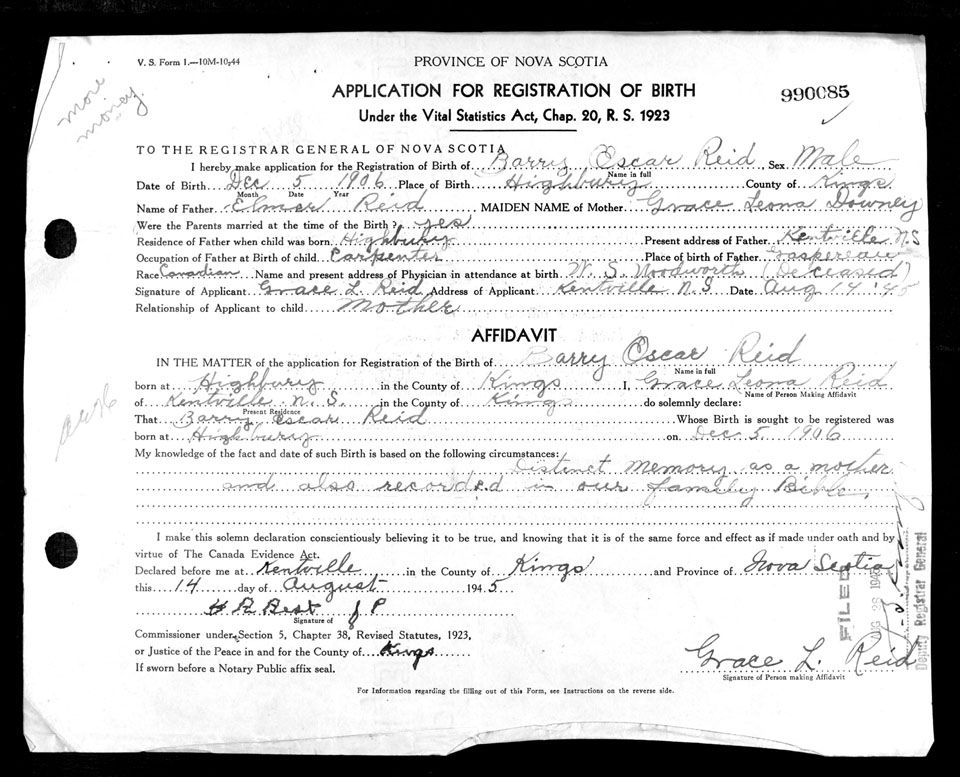 V. S. Form 1.—10M-10-44
PROVINCE OF NOVA SCOTIA
more
money.
APPLICATION FOR REGISTRATION OF BIRTH
990085
Under the Vital Statistics Act, Chap. 20, R. S. 1923
TO THE REGISTRAR GENERAL OF NOVA SCOTIA
I hereby make application for the Registration of Birth of Barry Oscar Reid Sex Male
Name in full
Date of Birth Dec 5 1906 Place of Birth Highbury County of Kings
Month Date Year
Name of Father Elmer Reid MAIDEN NAME of Mother Grace Leona Downey
Were the Parents married at the time of the Birth? yes
Residence of Father when child was born Highbury Present address of Father Kentville N.S
Occupation of Father at Birth of child Carpenter Place of birth of Father Gaspereau
Race Canadian Name and present address of Physician in attendance at birth W. S. Woodworth (Deceased)
Signature of Applicant Grace L. Reid Address of Applicant Kentville N.S Date Aug 14 '45
Relationship of Applicant to child Mother
AFFIDAVIT
IN THE MATTER of the application for Registration of the Birth of Barry Oscar Reid
Name in full
born at Highbury in the County of Kings I, Grace Leona Reid
Name of Person Making Affidavit
of Kentville N.S. in the County of Kings do solemnly declare:
Present Residence
That Barry Oscar Reid Whose Birth is sought to be registered was
born at Highbury on Dec 5 1906
My knowledge of the fact and date of such Birth is based on the following circumstances:
Distinct Memory as a mother
and also recorded in our family Bible.
I make this solemn declaration conscientiously believing it to be true, and knowing that it is of the same force and effect as if made under oath and by
virtue of The Canada Evidence Act.
Declared before me at Kentville in the County of Kings and Province of Nova Scotia
this 14 day of August 1945
Best J P
Signature of
Commissioner under Section 5, Chapter 38, Revised Statutes, 1923,
or Justice of the Peace in and for the County of Kings
If sworn before a Notary Public affix seal.
Grace L. Reid
Signature of Person making Affidavit
FILED
AUG 28 1945
Deputy Registrar General
For Information regarding the filling out of this Form, see Instructions on the reverse side.